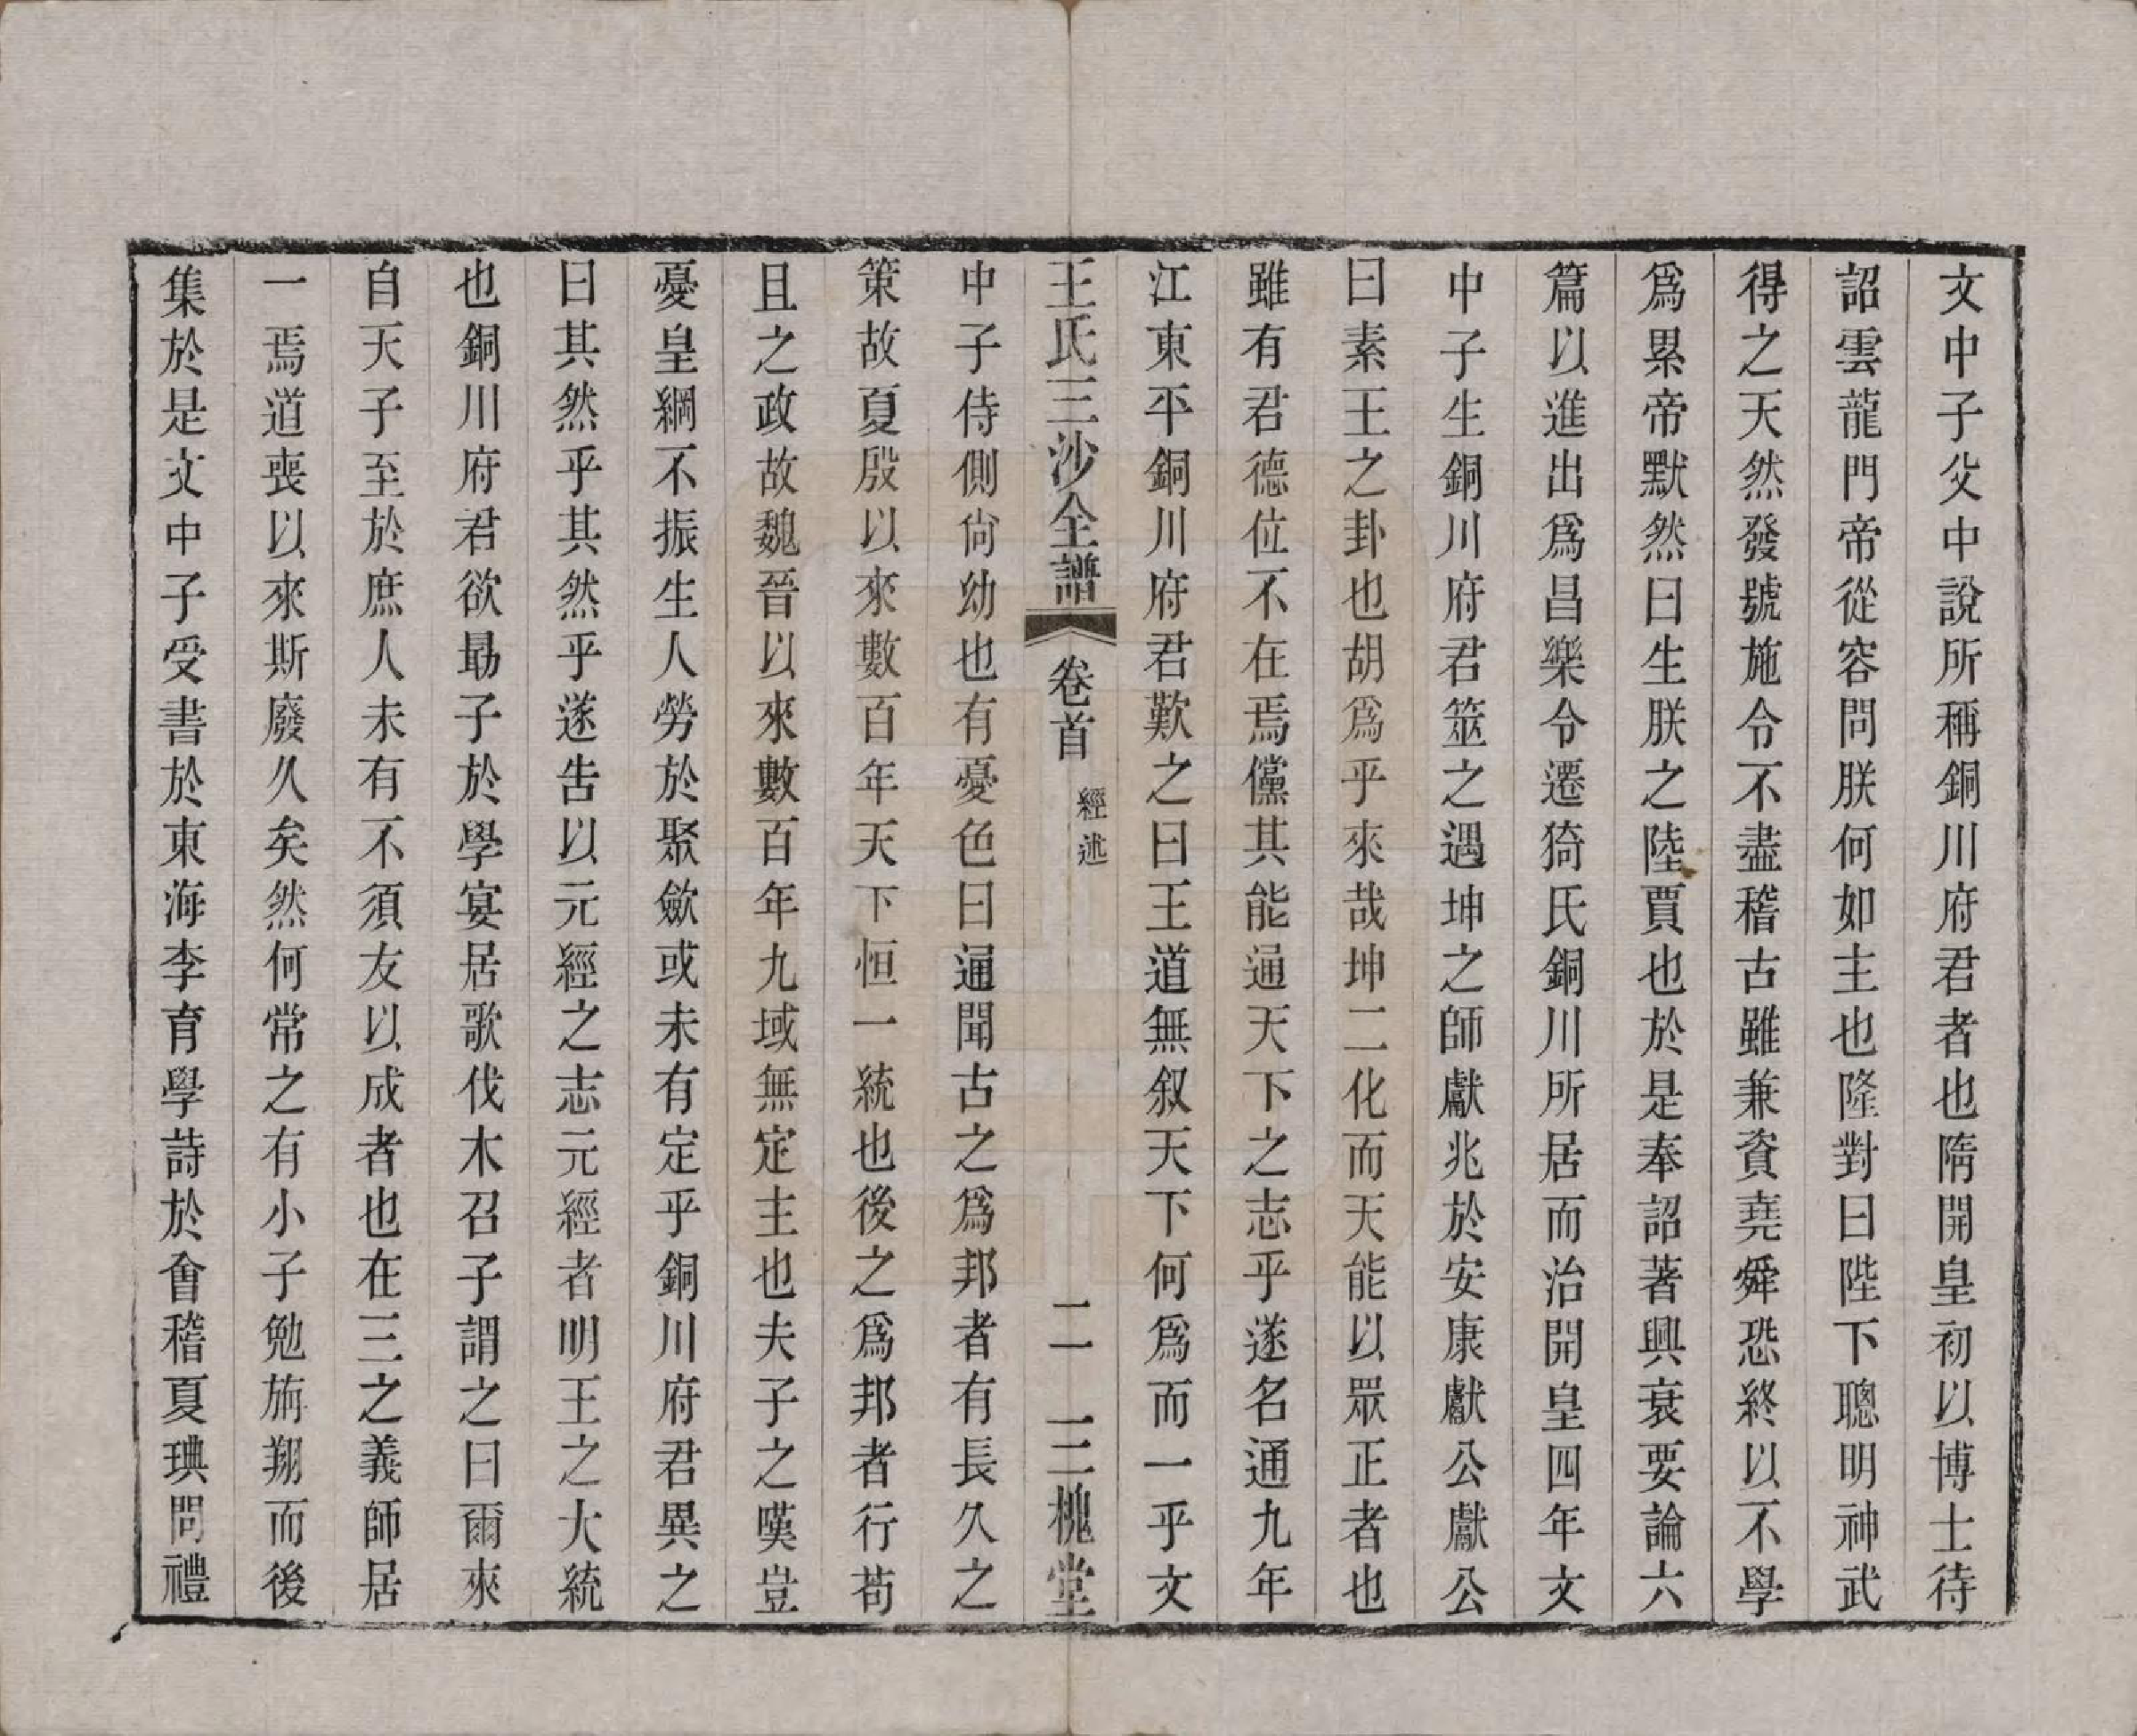 文中子父中說所稱銅川府君者也隋開皇初以博士待
詔雲龍門帝從容問朕何如主也隆對曰陛下聰明神武
得之天然發號施令不盡稽古雖兼資堯舜恐終以不學
爲累帝默然曰生朕之陸賈也於是奉詔著興衰要論六
篇以進出爲昌樂令遷猗氏銅川所居而治開皇四年文
中子生銅川府君筮之遇坤之師獻兆於安康獻公獻公
曰素王之卦也胡爲乎來哉坤二化而天能以眾正者也
雖有君德位不在焉儻其能通天下之志乎遂名通九年
江東平銅川府君歎之曰王道無叙天下何爲而一乎文
王氏三沙全譜 卷首 經述 二 三槐堂
中子侍側尙幼也有憂色曰通聞古之爲邦者有長久之
策故夏殷以來數百年天下恒一統也後之爲邦者行苟
且之政故魏晉以來數百年九域無定主也夫子之嘆豈
憂皇綱不振生人勞於聚歛或未有定乎銅川府君異之
曰其然乎其然乎遂告以元經之志元經者明王之大統
也銅川府君欲勗子於學宴居歌伐木召子謂之曰爾來
自天子至於庶人未有不須友以成者也在三之義師居
一焉道喪以來斯廢久矣然何常之有小子勉旃翔而後
集於是文中子受書於東海李育學詩於會稽夏琠問禮